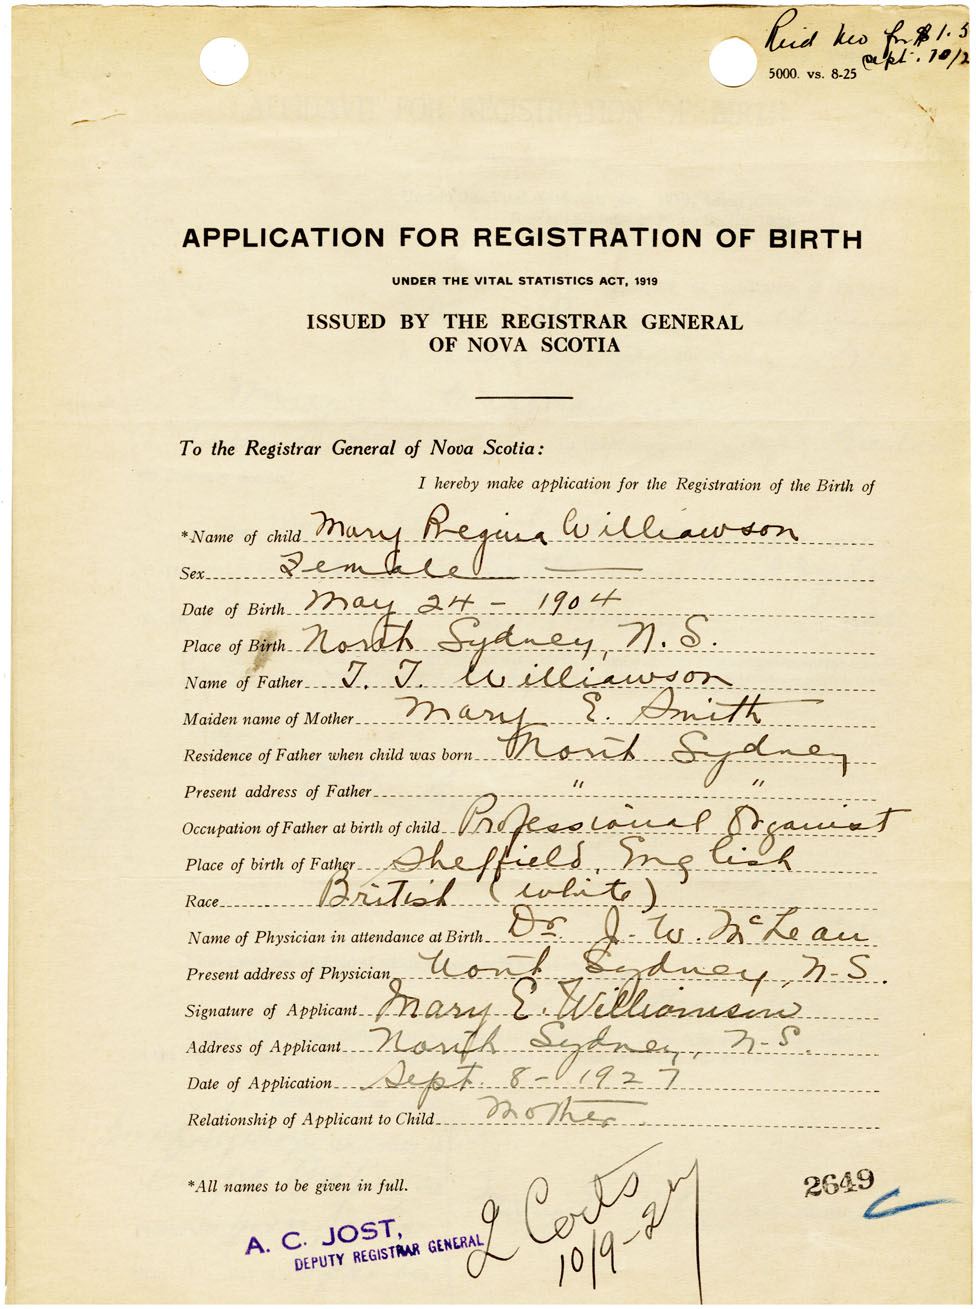 Recd MO for $1.5
Sept. 10/2
5000. vs. 8-25
APPLICATION FOR REGISTRATION OF BIRTH
UNDER THE VITAL STATISTICS ACT, 1919
ISSUED BY THE REGISTRAR GENERAL
OF NOVA SCOTIA
To the Registrar General of Nova Scotia:
I hereby make application for the Registration of the Birth of
*Name of child Mary Regina Williamson
Sex Female
Date of Birth May 24 - 1904
Place of Birth North Sydney, N. S.
Name of Father T. T. Williamson
Maiden name of Mother Mary E. Smith
Residence of Father when child was born North Sydney
Present address of Father " "
Occupation of Father at birth of child Professional Organist
Place of birth of Father Sheffield, English
Race British (white)
Name of Physician in attendance at Birth Dr. J. W. McLean
Present address of Physician North Sydney, N-S.
Signature of Applicant Mary E. Williamson
Address of Applicant North Sydney, N-S.
Date of Application Sept. 8 - 1927
Relationship of Applicant to Child Mother
*All names to be given in full.
2649
2 Certs
10/9-27
A. C. JOST,
DEPUTY REGISTRAR GENERAL